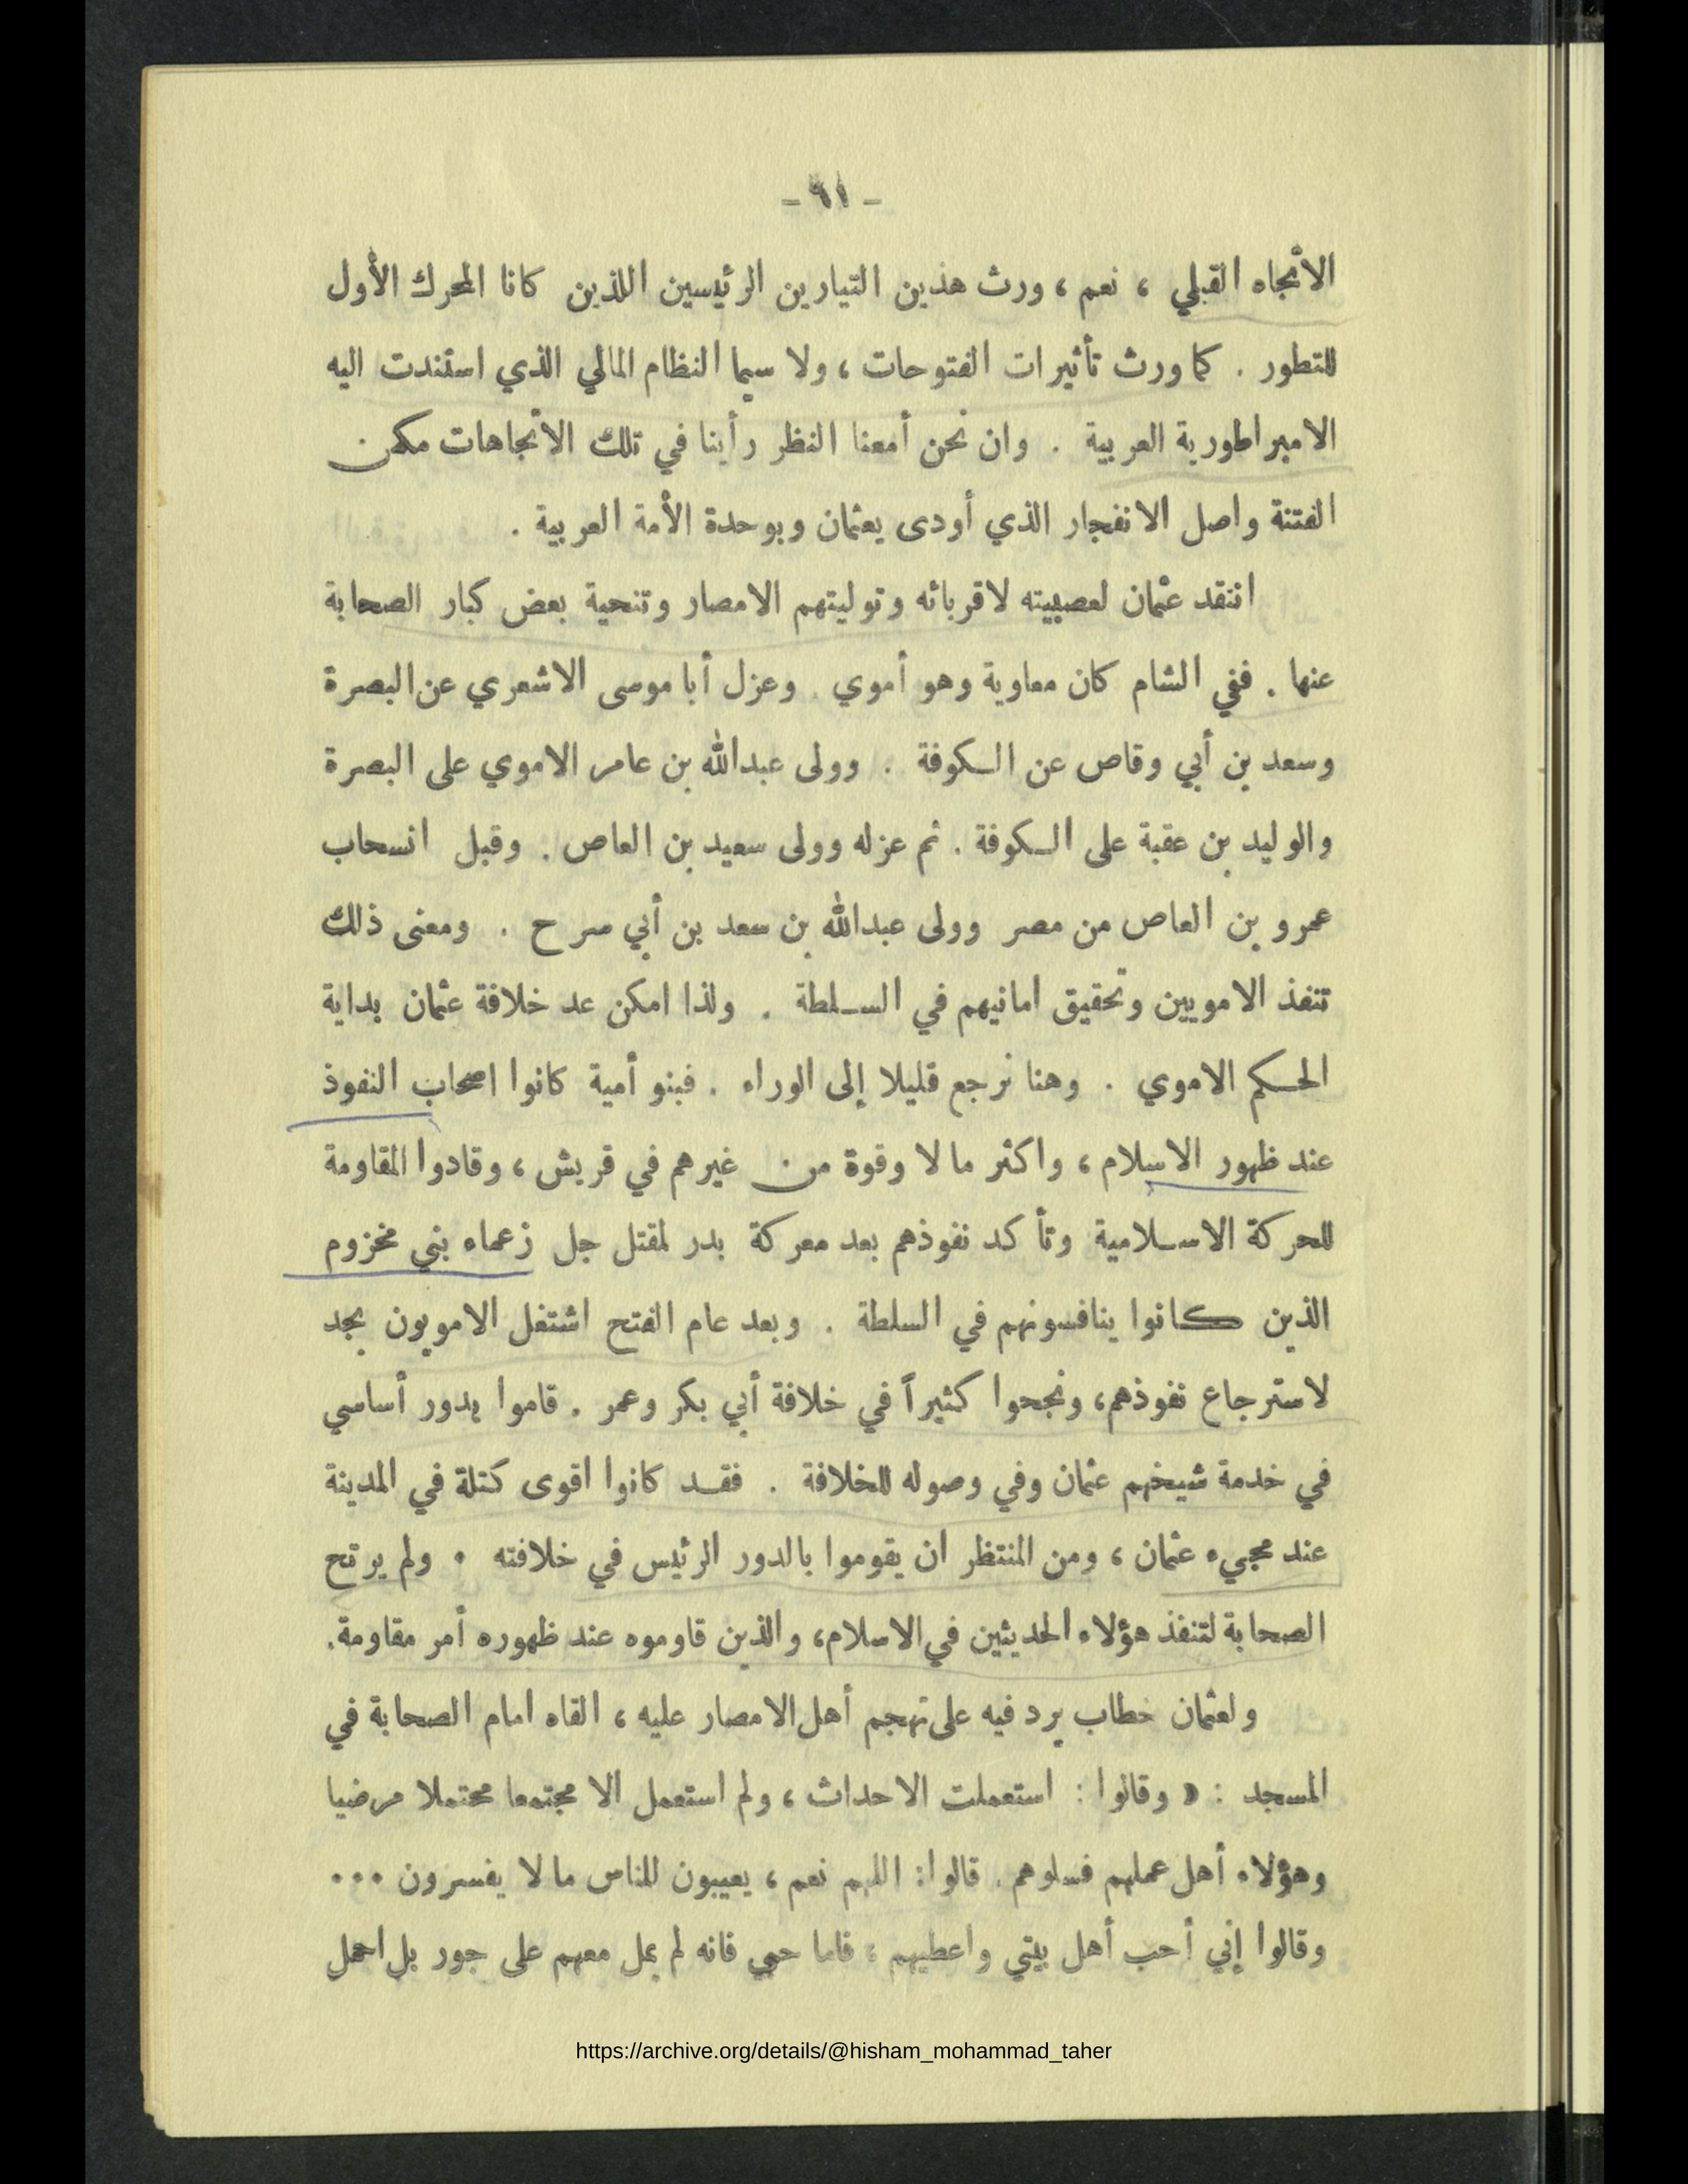 - ٩١ -
الاتجاه القبلي ، نعم ، ورث هذين التيارين الرئيسين اللذين كانا المحرك الأول
للتطور . كما ورث تأثيرات الفتوحات ، ولا سيما النظام المالي الذي استندت اليه
الامبراطورية العربية . وان نحن أمعنا النظر رأينا في تلك الاتجاهات مكمن
الفتنة واصل الانفجار الذي أودى بعثمان وبوحدة الأمة العربية .
انتقد عثمان لعصبيته لاقربائه وتوليتهم الامصار وتنحية بعض كبار الصحابة
عنها . ففي الشام كان معاوية وهو أموي . وعزل أبا موسى الاشعري عن البصرة
وسعد بن أبي وقاص عن الكوفة . وولى عبدالله بن عامر الاموي على البصرة
والوليد بن عقبة على الكوفة . ثم عزله وولى سعيد بن العاص . وقبل انسحاب
عمرو بن العاص من مصر وولى عبدالله بن سعد بن أبي سرح . ومعنى ذلك
تنفذ الامويين وتحقيق امانيهم في السلطة . ولذا امكن عد خلافة عثمان بداية
الحكم الاموي . وهنا نرجع قليلا إلى الوراء . فبنو أمية كانوا اصحاب النفوذ
عند ظهور الاسلام ، واكثر ما لا وقوة من غيرهم في قريش ، وقادوا المقاومة
للحركة الاسلامية وتأكد نفوذهم بعد معركة بدر لمقتل جل زعماء بني مخزوم
الذين كانوا ينافسونهم في السلطة . وبعد عام الفتح اشتغل الامويون بجد
لاسترجاع نفوذهم، ونجحوا كثيراً في خلافة أبي بكر وعمر . قاموا بدور أساسي
في خدمة شيخهم عثمان وفي وصوله للخلافة . فقد كانوا اقوى كتلة في المدينة
عند مجيء عثمان ، ومن المنتظر ان يقوموا بالدور الرئيس في خلافته . ولم يرتح
الصحابة لتنفذ هؤلاء الحديثين في الاسلام، والذين قاوموه عند ظهوره أمر مقاومة.
ولعثمان خطاب يرد فيه على تهجم أهل الامصار عليه ، القاه امام الصحابة في
المسجد : « وقالوا : استعملت الاحداث ، ولم استعمل الا مجتمعا محتملا مرضيا
وهؤلاء أهل عملهم فسلوهم . قالوا: اللهم نعم ، يعيبون للناس ما لا يفسرون ...
وقالوا إني أحب أهل بيتي واعطيهم ؛ فاما حبي فانه لم يمل معهم على جور بل احمل
https://archive.org/details/@hisham_mohammad_taher